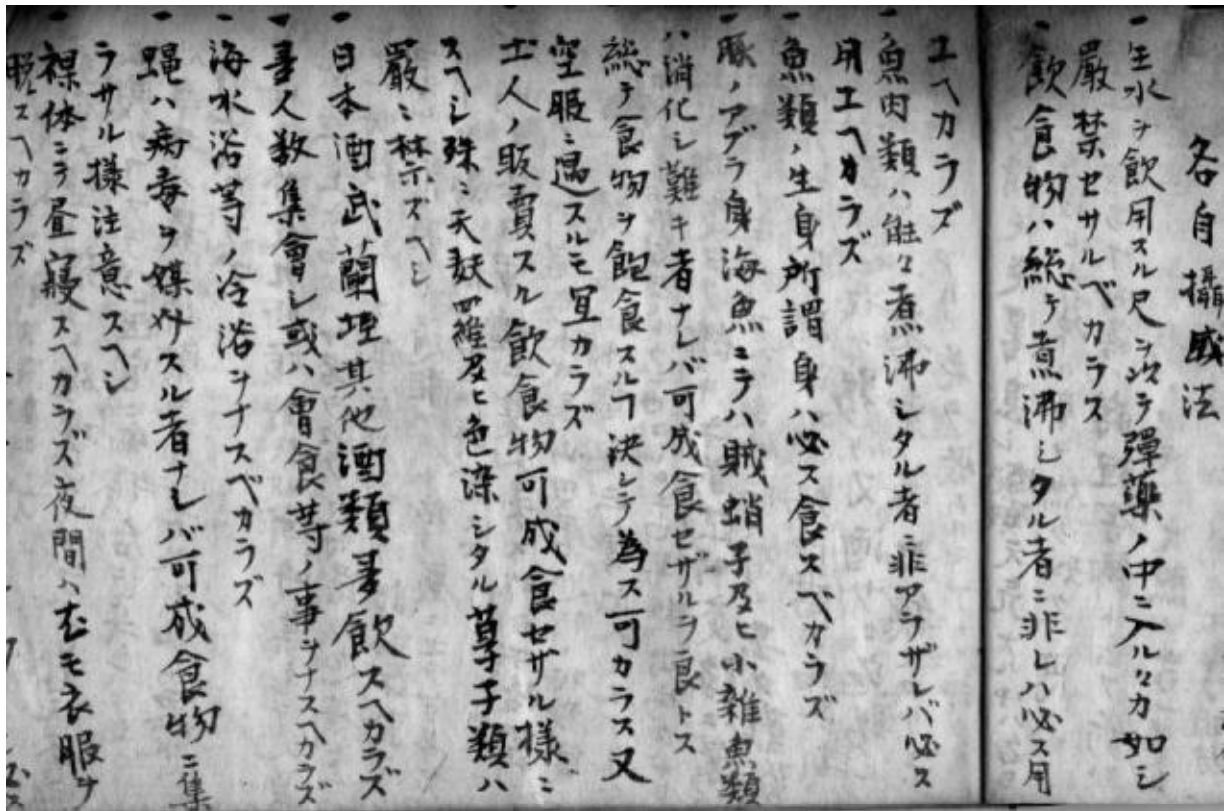 各自攝威法
一 生水ヲ飲用スル尺シ次テ彈藥ノ中ニ入ルリカ如シ
嚴禁セサルベカラス
一 飲食物ハ総テ煮沸シタル者ニ非レハ必ス用
エヘカラズ
一 魚肉類ハ能々煮沸シタル者ニ非アラザレバ必ス
用エヘカラズ
一 魚類ノ生身所謂身ハ必ス食スベカラズ
一 豚ノアブラ身海魚ニテハ賊蛸子及ヒ小雑魚類
ハ消化シ難キ者ナレバ可成食セザルヲ良トス
一 総テ食物ヲ飽食スルヿ決シテ為ス可カラス又
空服ニ過スルモ宜カラズ
一 土人ノ販賣スル飲食物可成食セザル様ニ
スヘシ殊ニ天麸羅及ヒ色染シタル草子類ハ
嚴ニ禁示ズヘシ
一 日本酒武蘭垤其他酒類多飲スヘカラズ
一 多人数集會シ或ハ會食等ノ事ヲナスヘカラズ
一 海水浴等ノ冷浴ヲナスベカラズ
一 蝿ハ病毒ヲ媒スル者ナレバ可成食物ニ集
ラサル様注意スヘシ
一 裸体ニテ昼寝スヘカラズ夜間ハ尤モ衣服ヲ
脱スヘカラズ